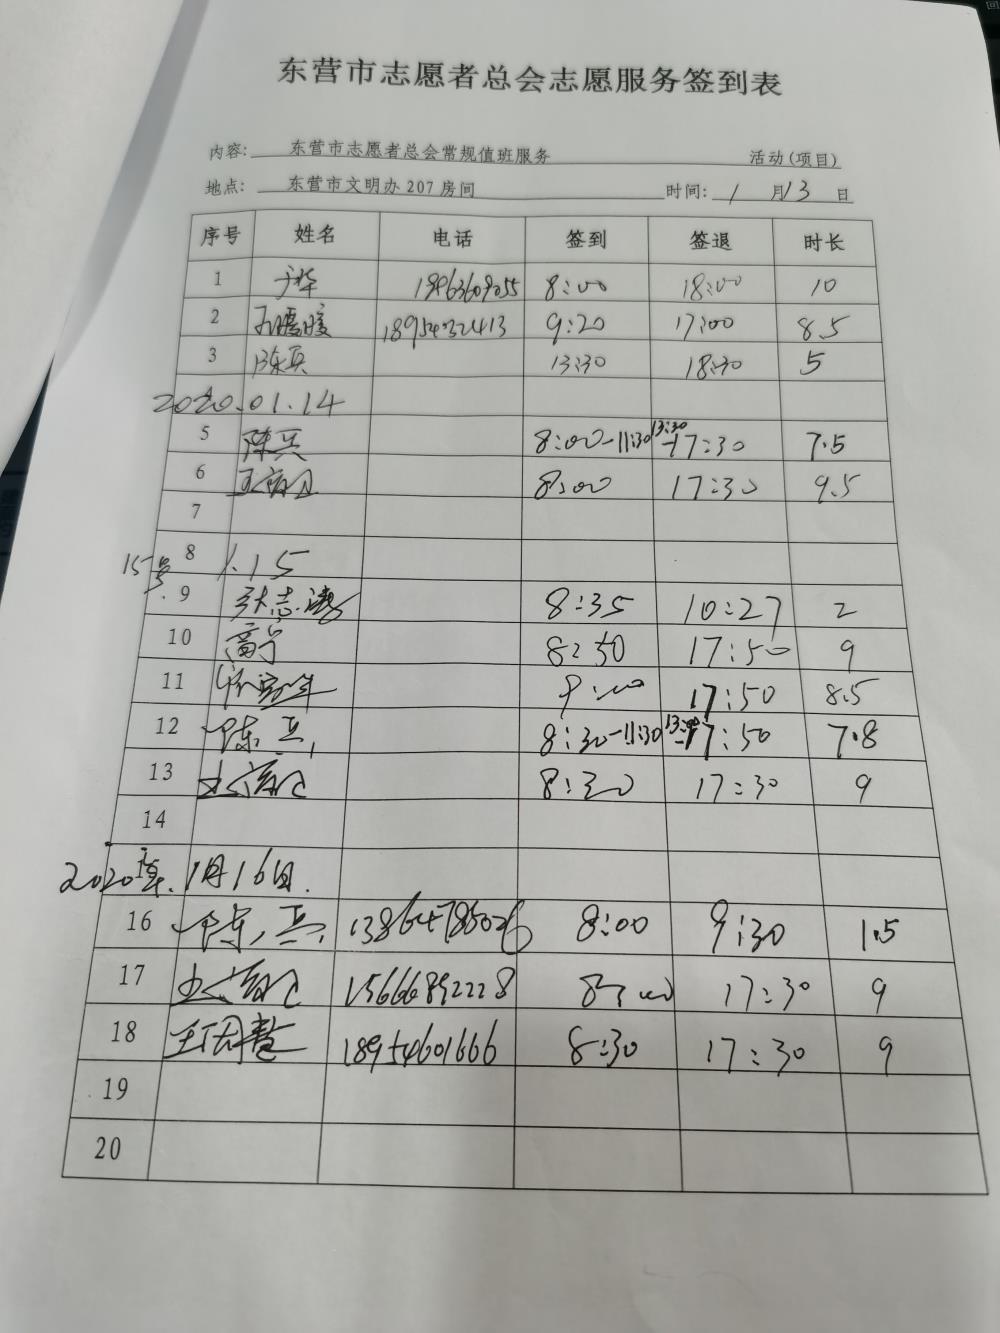 东营市志愿者总会志愿服务签到表
内容: 东营市志愿者总会常规值班服务 活动(项目)
地点: 东营市文明办 207 房间 时间: 1 月 13 日
序号 姓名 电话 签到 签退 时长
1 于华 18963609055 8:00 18:00 10
2 孔暖暖 18954032413 9:20 17:00 8.5
3 陈兵 13:30 18:30 5
2020.01.14
5 陈兵 8:00-11:30 13:30-17:30 7.5
6 8:00 17:30 9.5
7
8 1.15
15号
9 张志涛 8:35 10:27 2
10 高宁 8:50 17:50 9
11 9:00 17:50 8.5
12 陈兵 8:30-11:30 13:00-17:50 7.8
13 8:30 17:30 9
14
2020年.1月16日.
16 陈兵 13864785026 8:00 9:30 1.5
17 15666892228 8:00 17:30 9
18 18954601666 8:30 17:30 9
19
20